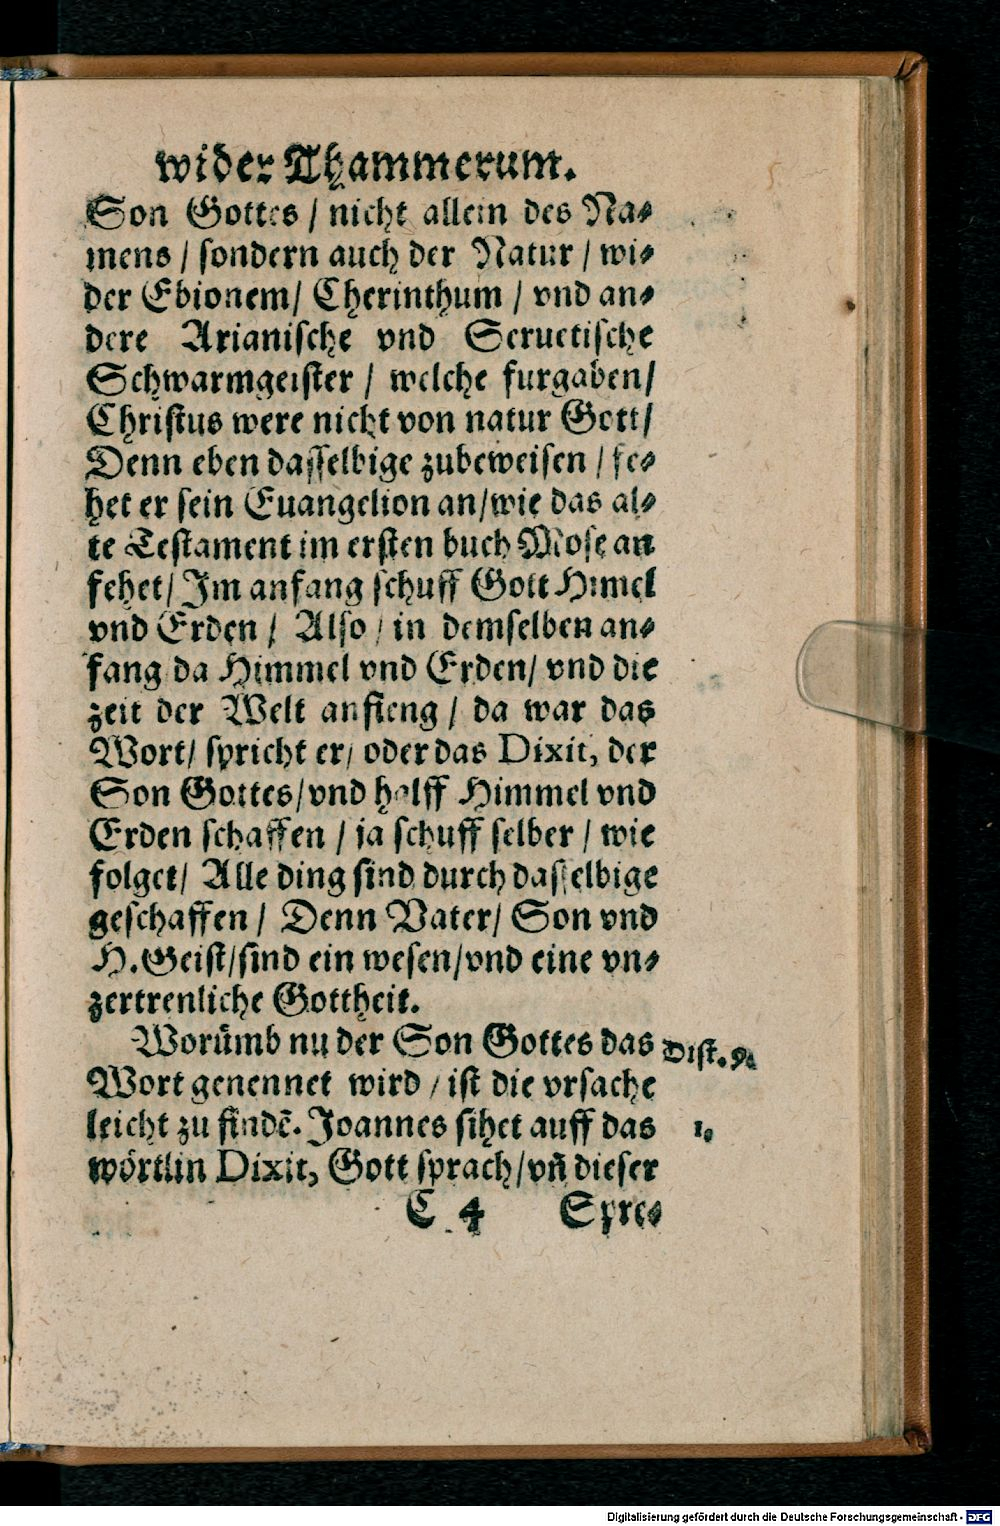 wider Thammerum.
Son Gottes / nicht allein des Na-
mens / sondern auch der Natur / wi-
der Ebionem / Cherinthum / vnd an-
dere Arianische vnd Seruetische
Schwarmgeister / welche furgaben /
Christus were nicht von natur Gott /
Denn eben dasselbige zubeweisen / fe-
het er sein Euangelion an / wie das al-
te Testament im ersten buch Mose an
fehet / Im anfang schuff Gott Himel
vnd Erden / Also / in demselben an-
fang da Himmel vnd Erden / vnd die
zeit der Welt anfieng / da war das
Wort / spricht er / oder das Dixit, der
Son Gottes / vnd halff Himmel vnd
Erden schaffen / ja schuff selber / wie
folget / Alle ding sind durch dasselbige
geschaffen / Denn Vater / Son vnd
H. Geist / sind ein wesen / vnd eine vn-
zertrenliche Gottheit.
Worümb nu der Son Gottes das
Wort genennet wird / ist die vrsache
leicht zu findē. Joannes sihet auff das
wörtlin Dixit, Gott sprach / vñ dieser
Dist.
1.
C 4 Spre-
Digitalisierung gefördert durch die Deutsche Forschungsgemeinschaft - DFG